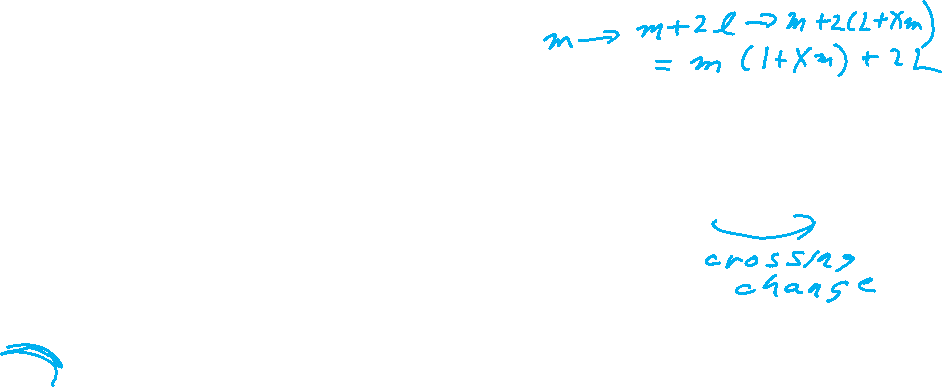 m → m + 2 l → m + 2(L + Xm)
= m (1 + Xm) + 2L
crossing
change